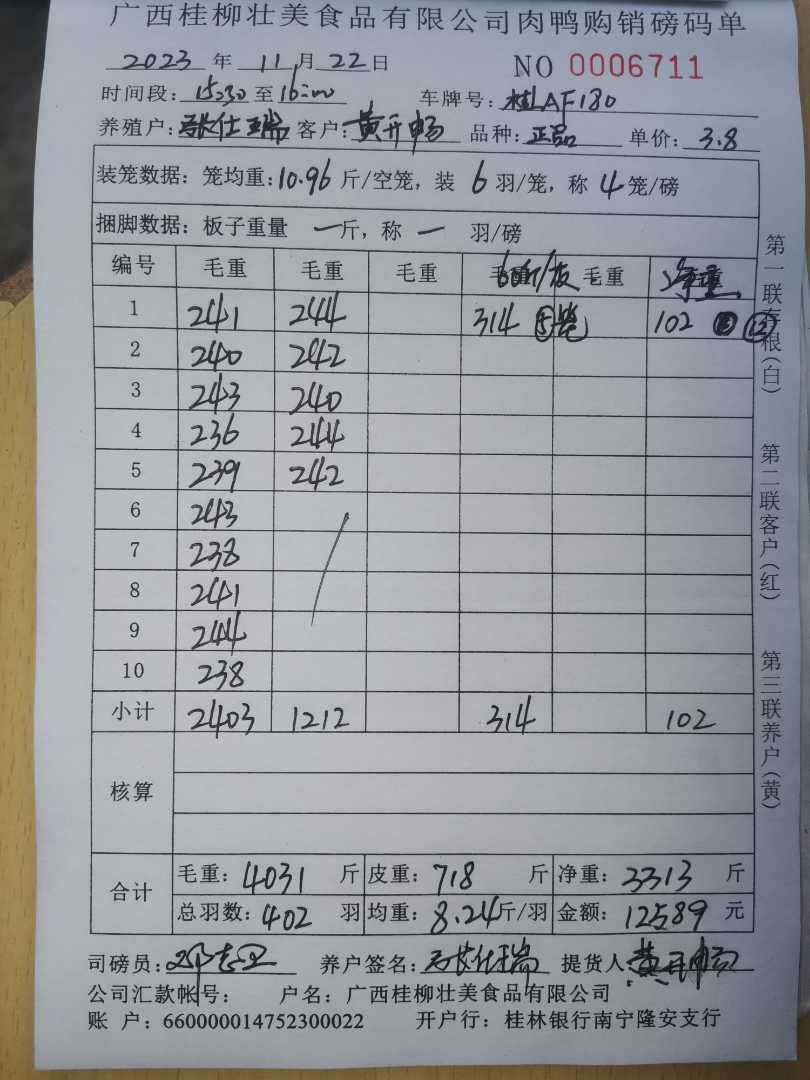 广西桂柳壮美食品有限公司肉鸭购销磅码单
2023 年 11 月 22 日 NO 0006711
时间段: 15:30 至 16:00 车牌号: 桂AF180
养殖户: 张仕瑞 客户: 黄开畅 品种: 正品 单价: 3.8
装笼数据: 笼均重: 10.96 斤/空笼, 装 6 羽/笼, 称 4 笼/磅
捆脚数据: 板子重量 一 斤, 称 一 羽/磅
编号 毛重 毛重 毛重 毛重 毛重 净重
1 241 244 314 5笼 102 12
2 240 242
3 243 240
4 236 244
5 239 242
6 243
7 238
8 241
9 244
10 238
小计 2403 1212 314 102
核算
合计 毛重: 4031 斤 皮重: 718 斤 净重: 3313 斤
总羽数: 402 羽 均重: 8.24 斤/羽 金额: 12589 元
司磅员: 养户签名: 张仕瑞 提货人: 黄开畅
公司汇款帐号: 户名: 广西桂柳壮美食品有限公司
账 户: 660000014752300022 开户行: 桂林银行南宁隆安支行
第一联存根(白)
第二联客户(红)
第三联养户(黄)